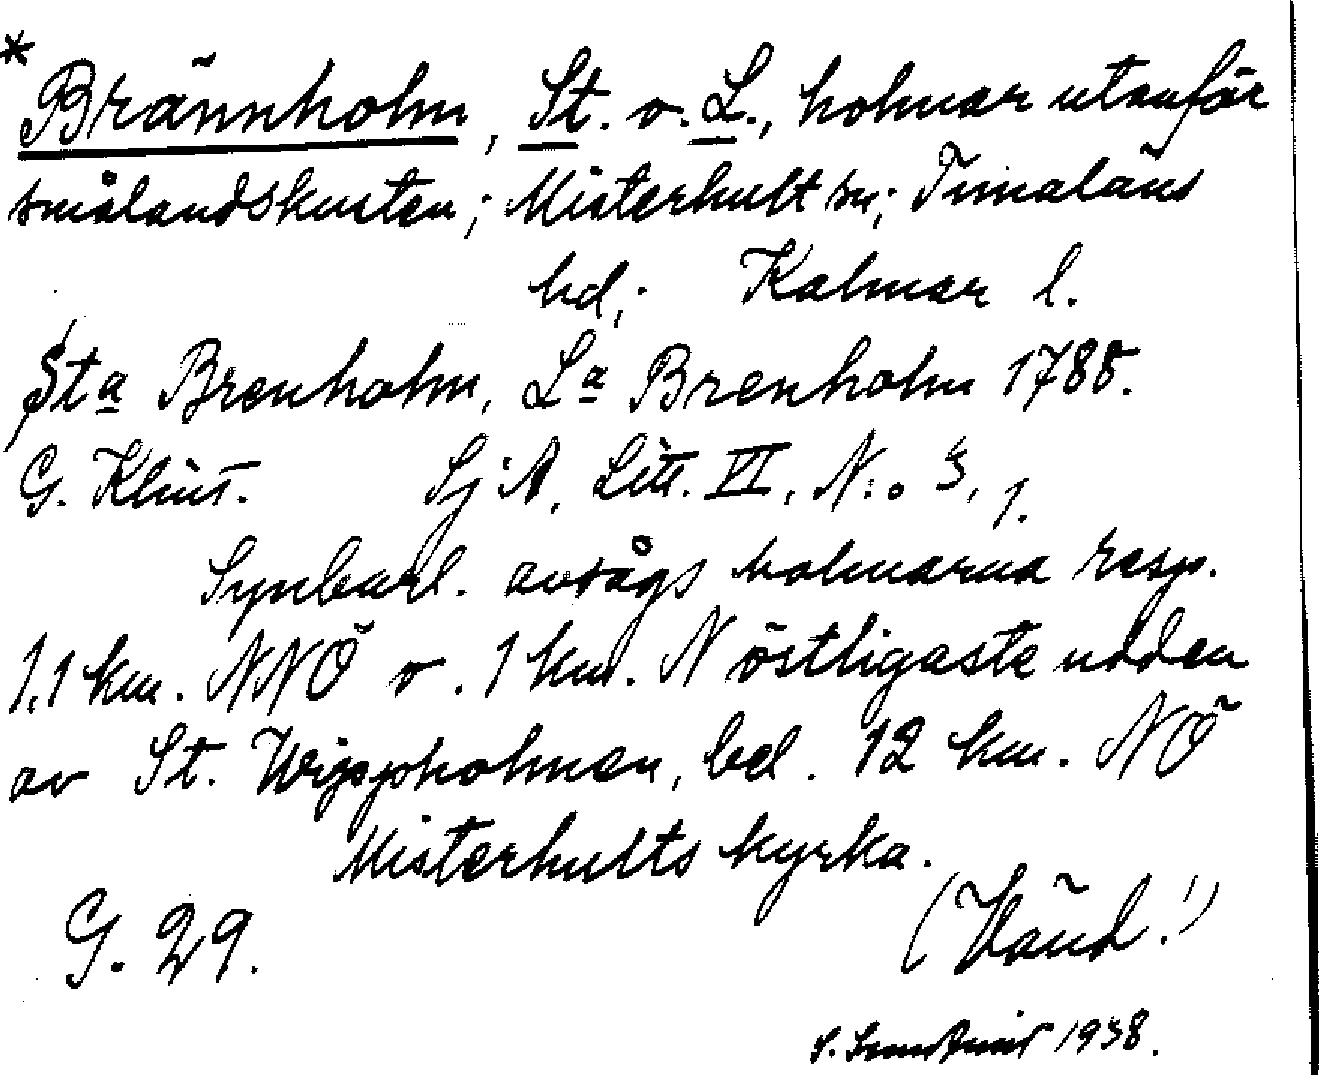 * Brännholm, St. o. L., holmar utanför
smålandskusten; Misterhult sn; Tunaläns
hd; Kalmar l.
Sta Brenholm, La Brenholm 1788.
G. Klint. SjA, Litt. VI, N:o 3, 1.
Synbarl. avsågs holmarna resp.
1,1 km. NNÖ o. 1 km. N östligaste udden
av St. Wippholmen, bel. 12 km. NÖ
Misterhults kyrka.
G. 29. (Vänd!)
1938.